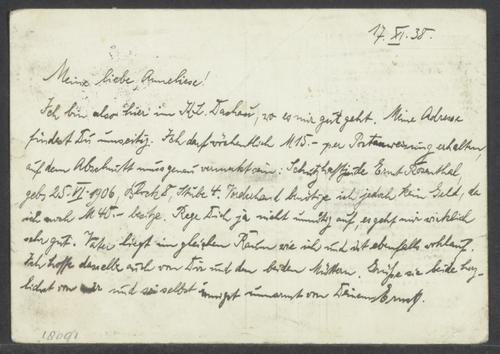 17. XI. 38.
Meine liebe Anneliese!
Ich bin also hier im K.L. Dachau, wo es mir gut geht. Meine Adresse
findest Du umseitig. Ich darf wöchentlich M 15.- per Postanweisung erhalten,
auf dem Abschnitt muss genau vermerkt sein: Schutzhaftjude Ernst Rosenthal
geb. 25. VI. 1906 Block 8, Stube 4. Vorderhand benötige ich jedoch kein Geld, da
ich noch M 40.- besitze. Rege Dich ja nicht unnötig auf, es geht mir wirklich
sehr gut. Vater liegt im gleichen Raum wie ich und ist ebenfalls wohlauf.
Ich hoffe dasselbe auch von Dir und den beiden Müttern. Grüße sie beide herz-
lichst von mir und sei selbst innigst umarmt von Deinem Ernst.
18091